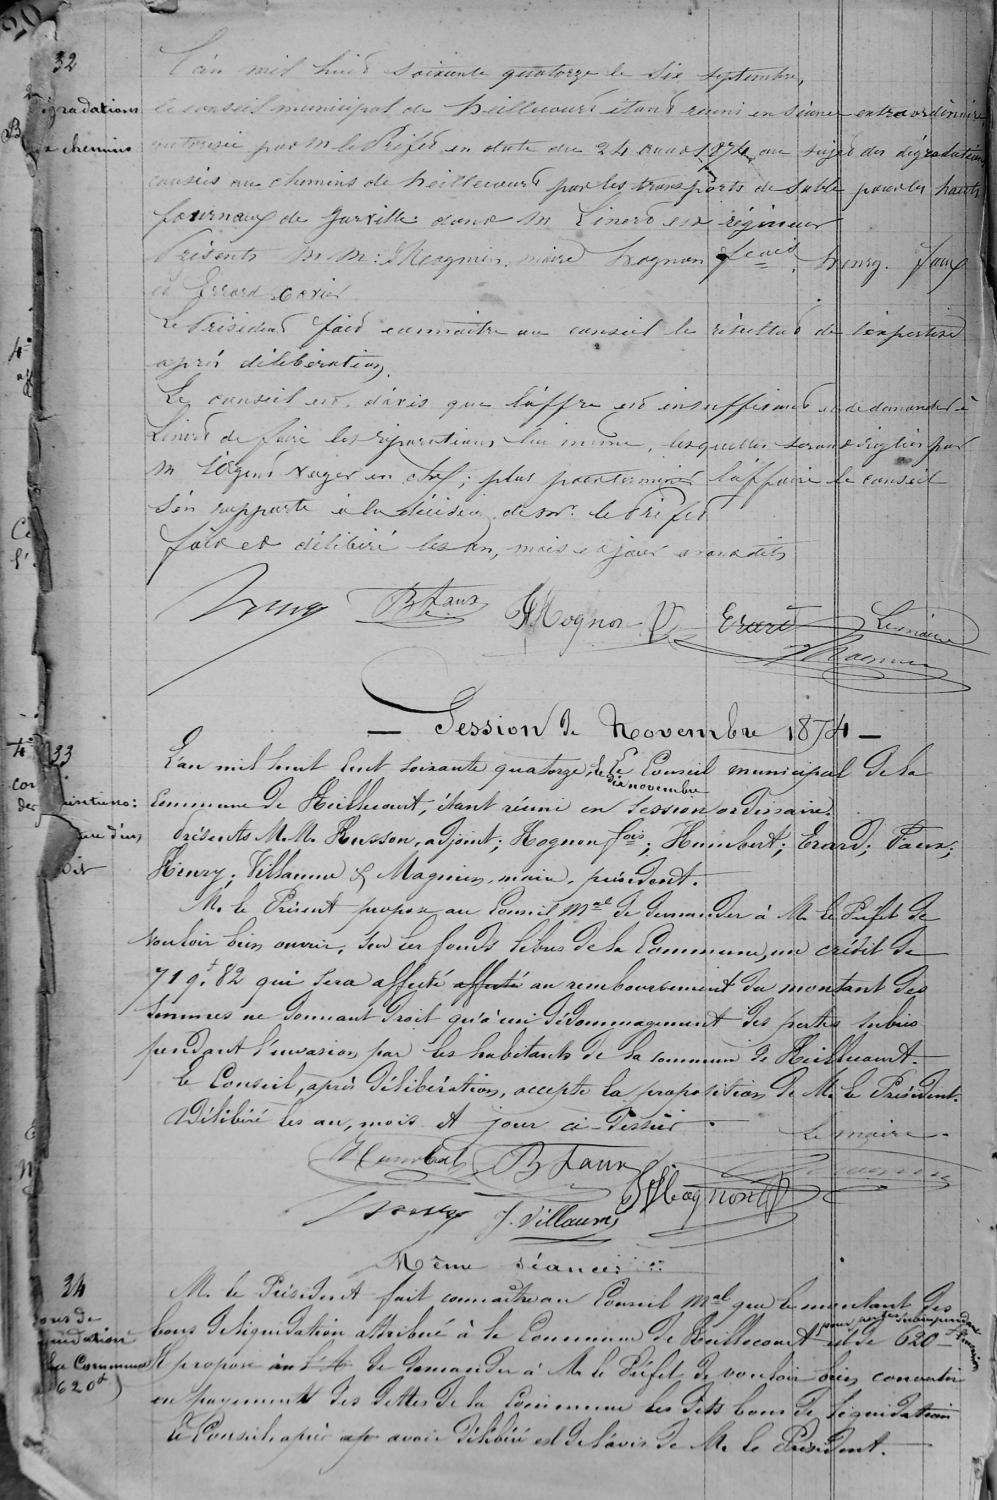 32
L'an mil huit soixante quatorze le six septembre,
le conseil municipal de heillecourt étant reuni en séance extraordinaire
autorisée par M le Préfet en date du 24 aout 1874 au sujet des dégradations
causées au chemins de heillecourt par les transports de sable pour les hauts
fourneaux de Jarville dont M Linard est régisseur
Présents M M: Magnien, maire hognon fcois, henry. faux
et Errard
Le Président fait connaître au conseil le résultat de l'expertise
après délibération,
Le conseil est d'avis que l'affre est insuffisant et de demander à
Linard de faire les réparations lui même, lesquelles seront réglées par
m l'Agent Voyer en chef; plus pour terminer l'affaire le conseil
s'en rapporte à la décision de mr le Préfet
fait et délibéré les an, mois et jour avant dits
dégradations
aux chemins
henry B Faux Hognon Erard Le maire
Magnien
— Session de Novembre 1874 —
33
L'an mil huit cent soixante quatorze, le dix novembre Le Conseil municipal de la
Commune de Heillecourt, étant réuni en session ordinaire.
Présents M.M. Husson, adjoint; Hognon fois; Humbert; Erard; Faux;
Henry; Villaume & Magnien, maire, président.
M. le Présent propose au Conseil Mal de demander à M. le Préfet de
vouloir bien ouvrir, sur les fonds libres de la Commune, un crédit de
719f.82 qui sera affecté affecté au remboursement du montant des
sommes ne donnant droit qu'à un dédommagement des pertes subies
pendant l'invasion par les habitants de la commune de Heillecourt.
Le Conseil, après délibération, accepte la proposition de M. le Président.
Délibéré les an, mois et jour ci-dessus.
Le maire.
Humbert B Faux
Henry J. Villaume Hognon
Même séance:
34
M. le Président fait connaître au Conseil Mal que le montant des
bons de liquidation attribué à la Commune de Heillecourt pour pertes subies pendant l'invasion est de 620f
Il propose de demander à M. le Préfet de vouloir bien convertir
en payement des dettes de la Commune les dits bons de liquidation
Le Conseil, après avoir délibéré est de l'avis de M. le Président.
liquidation
la Commune
620f)